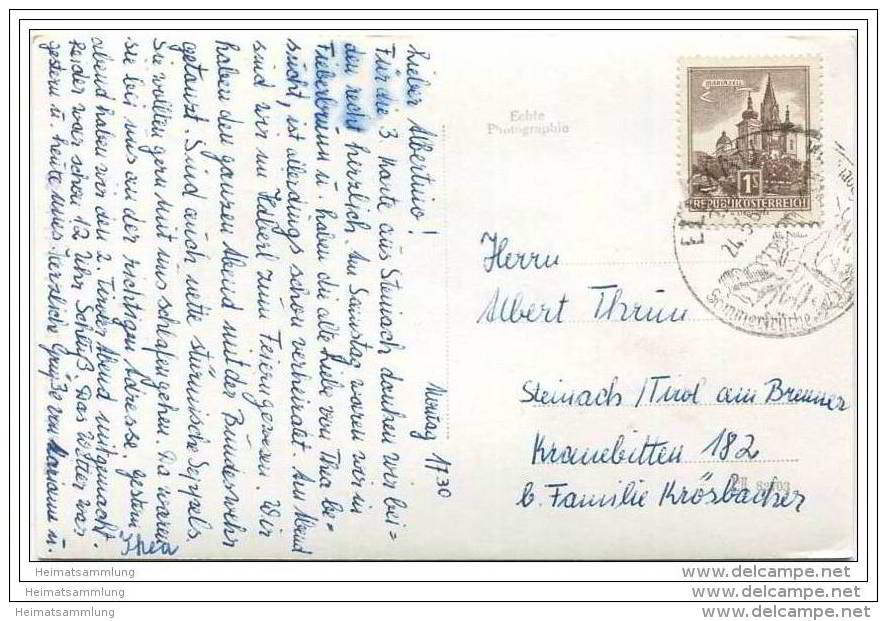 Montag 17.30
Lieber Albertino!
Für die 3. Karte aus Steinach danken wir bei=
den recht herzlich. Am Samstag waren wir in
Fieberbrunn u. haben die alte Liebe von Thea be=
sucht, ist allerdings schon verheiratet. Am Abend
sind wir im zum Feiern gewesen. Wir
haben den ganzen Abend mit der Bundeswehr
getanzt. Sind auch nette stürmische Seppels
Sie wollten gern mit uns schlafen gehen. Da waren
sie bei uns an der richtigen Adresse. Gestern
abend haben wir den 2. Tiroler Abend mitgemacht.
Leider war schon 12 Uhr Schluß. Das Wetter war
gestern u. heute Herzliche Grüße von u.
Thea
Echte
Photographie
MARIAZELL
1S
REPUBLIK ÖSTERREICH
Sommerfrische
Herrn
Albert Thrun
Steinach/Tirol am Brenner
Kranebitten 182
b. Familie Krösbacher
Heimatsammlung
www.delcampe.net
Heimatsammlung
www.delcampe.net
Heimatsammlung
www.delcampe.net